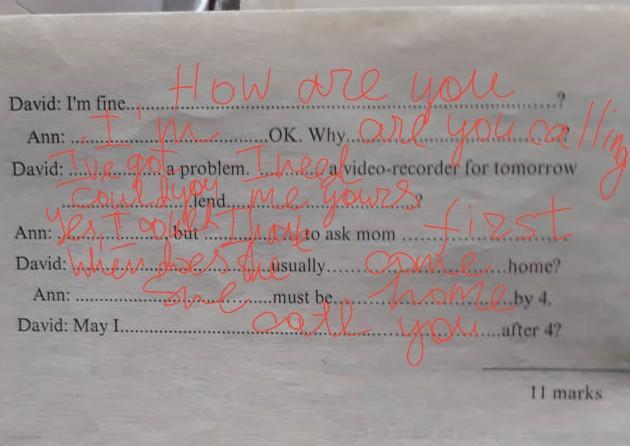 David: I'm fine.. How are you ..?
Ann: I'm OK. Why are you calling ?
David: I've got a problem. I need a video-recorder for tomorrow
could you lend me yours ?
Ann: Yes, I could but I have to ask mom first
David: When does she usually come home?
Ann: She must be home by 4.
David: May I call you after 4?
11 marks